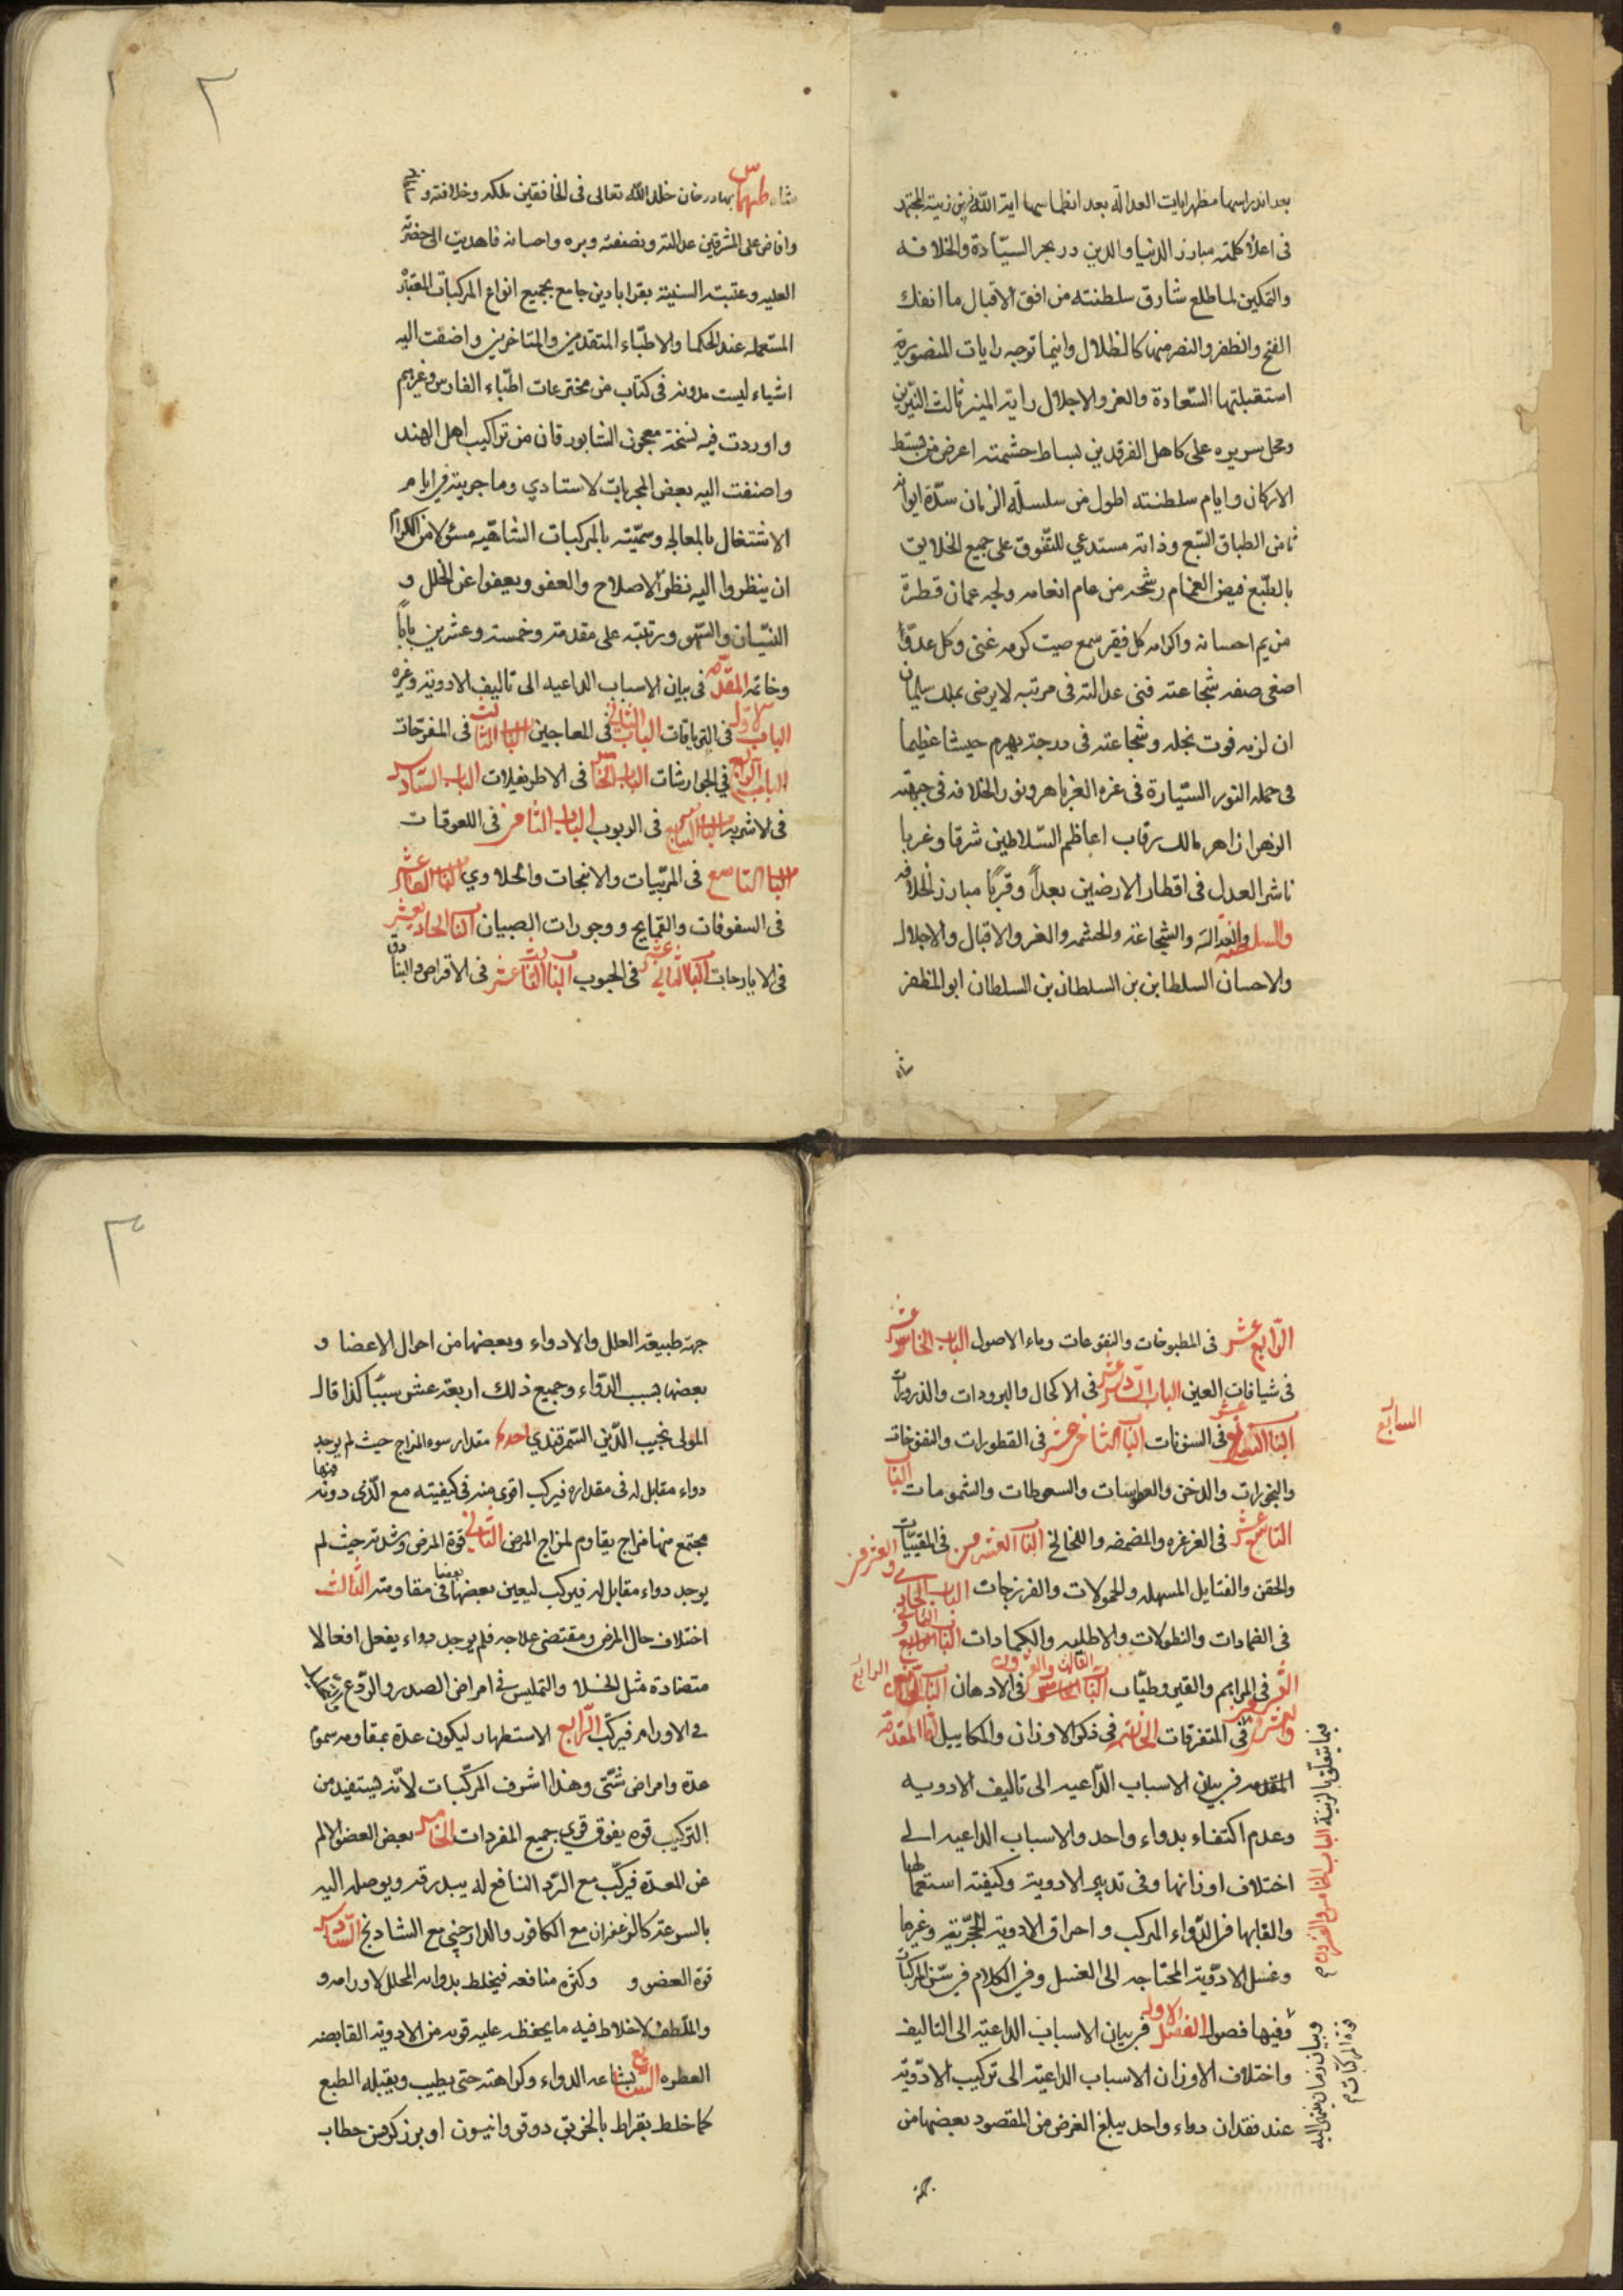 بعد اندراسها مظهر ايات العدالة بعد انطماسها اية الله زينة المجتهد
فى اعلاء كلمته مبارز الدنيا والدين در بحر السيّادة والخلافه
والتمكين لما طلع شارق سلطنته من افق الاقبال ما انفك
الفتح والظفر والنصر منها كالظلال واينما توجه رايات المنصورية
استقبلتها السّعادة والعز والاجلال راية المنير ثالث النيّرين
ومحل سريره على كاهل الفرقدين بساط حشمته اعرض من بسط
الاركان وايام سلطنته اطول من سلسلة الزمان سدّة ايوانه
ثامن الطباق السّبع وذاته مستدعي للتّفوق على جميع الخلايق
بالطّبع فيض الغمام رشحه من عام انعامه ولجه عمان قطرة
من يم احسانه واكرامه كل فقير سمع صيت كرمه غنى وكل عدو
اصغى صفه شجاعته فنى عدالته فى مرتبه لا يرضى بملك سليمان
ان لزمه فوت نجله وشجاعته فى درجة يهزم جيشا عظيما
فى حمله النور السّيارة فى غره الغر باهر ونور الخلافه فى جبهته
الزهرا زاهر مالك رقاب اعاظم السّلاطين شرقا وغربا
ناشر العدل فى اقطار الارضين بعداً وقرباً مبارز الخلافه
والسلطنه والعدالته والشجاعته والحشمه والعز والاقبال والاجلال
والاحسان السلطان بن السلطان بن السلطان ابو المظفر
شاه
٢
شاه طهماس بهادر خان خلد الله تعالى فى الخافقين ملكه وخلافته و
وافاض على المشرقين عدالته ونصفته وبره واحسانه فاهديت الى حضرته
العليه وعتبته السنية بقرابادين جامع بجميع انواع المركبات المعتبرة
المستعمله عند الحكما والاطبّاء المتقدمين والمتاخرين واضفت اليه
اشياء ليست مدونه فى كتاب من مخترعات اطبّاء الفارس وغيرهم
واوردت فيه نسخة معجون الشابورقان من تراكيب اهل الهند
واضفت اليه بعض المجربات لاستادي وما جربته فى ايام
الاشتغال بالمعالجه وسمّيته بالمركبات الشاهيه مسئولا من الكرام
ان ينظروا اليه نظر الاصلاح والعفو ويعفوا عن الخلل و
النسّيان والسّهو ورتبته على مقدمة وخمسة وعشرين باباً
وخاتمه المقدّمه فى بيان الاسباب الداعيه الى تاليف الادوية وغيره
الباب الاول فى الترياقات الباب الثانى فى المعاجين الباب الثالث فى المفرّحات
الباب الرابع فى الجوارشات الباب الخامس فى الاطريفلات الباب السّادس
فى الاشربه الباب السابع فى الربوب الباب الثامن فى اللعوقات
الباب التاسع فى المربّيات والانبجات والحلاوي الباب العاشر
فى السفوفات والقمايح ووجورات الصبيان الباب الحادي عشر
فى الايارجات الباب الثاني عشر فى الحبوب الباب الثالث عشر فى الاقراص والبنادق
الرّابع عشر فى المطبوخات والنقوعات وماء الاصول الباب الخامس عشر
فى شيافات العين الباب السّادس عشر فى الاكحال والبرودات والذرورات
السابع
الباب السابع عشر فى السنونات الباب الثامن عشر فى القطورات والنفوخات
والبخورات والدخن والعطوسات والسعوطات والشمومات الباب
التاسع عشر فى الغرغره والمضمضه واللخالخ الباب العشرون فى المقيّات
والحقن والفتايل المسهله والحمولات والفرزجات الباب الحادي والعشرون
فى الضمادات والنطولات والاطليه والكمادات الباب الثانى و
العشرون فى المراهم والقيروطيّات الباب الثالث والعشرون فى الادهان الباب الرابع
والعشرون فى المتفرقات الخاتمه فى ذكر الاوزان والمكاييل امّا المقدمة
فيما يتعلق بالزينة الباب الخامس والعشرون
المقدمه فى بيان الاسباب الدّاعيه الى تاليف الادويه
وعدم اكتفاء بدواء واحد والاسباب الداعيه الى
اختلاف اوزانها وفى تدبير الادوية وكيفية استعمالها
والقائها فى الدّواء المركب واحراق الادوية الحجرّية وغيرها
وغسل الادوّية المحتاجه الى الغسل وفى الكلام فى سّن المركبات
وفيها فصول الفصل الاول فى بيان الاسباب الداعية الى التاليف
واختلاف الاوزان الاسباب الداعية الى تركيب الادوّية
عند فقدان دواء واحد يبلغ الغرض من المقصود بعضها من
وبيان زمان ينتهى اليه
قوة المركبات
جهة
٣
جهة طبيعة العلل والادواء وبعضها من احوال الاعضا و
بعضها بسبب الدّواء وجميع ذلك اربعة عشر سببًا كذا قال
المولى نجيب الدّين السّمرقندي احدها مقدار سوء المزاج حيث لم يوجد
دواء مقابل له فى مقداره فيركب اقوى منه فى كيفيته مع الّذى دونه
فيها
مجتمع منها مزاج يقاوم لمزاج المرض الثّانى قوة المرض وشدّته حيث لم
يوجد دواء مقابل له فيركب ليعين بعضها بعضا فى مقاومته الثّالث
اختلاف حال المرض ومقتضى علاجه فلم يوجد دواء يفعل افعالا
متضادة مثل الجلا والتمليس فى امراض الصدر والرّدع والتحليل
فى الاورام فيركّب الرّابع الاستظهار ليكون عدة بمقاومه سموم
عدة وامراض شتّى وهذا اشرف المركّبات لانّه يستفيد من
التركيب قوه يفوق قوى جميع المفردات الخامس بعض العضو الالم
عن المعدة فيركّب مع الرّد النافع له يبدرقه ويوصله اليه
بالسرعة كالزعفران مع الكافور والدارچينى مع الشادنج السّادس
قوة العضو و وكثرة منافعه فيخلط بدوائه المحلل لاورامه و
والملّطف لاخلاط فيه ما يحفظ عليه قوته من الادوية القابضه
العطره السّابع بشاعه الدواء وكراهته حتى يطيب ويقبله الطبع
كما خلط بقراط بالخربق دوقو وانيسون او بزر كرفس